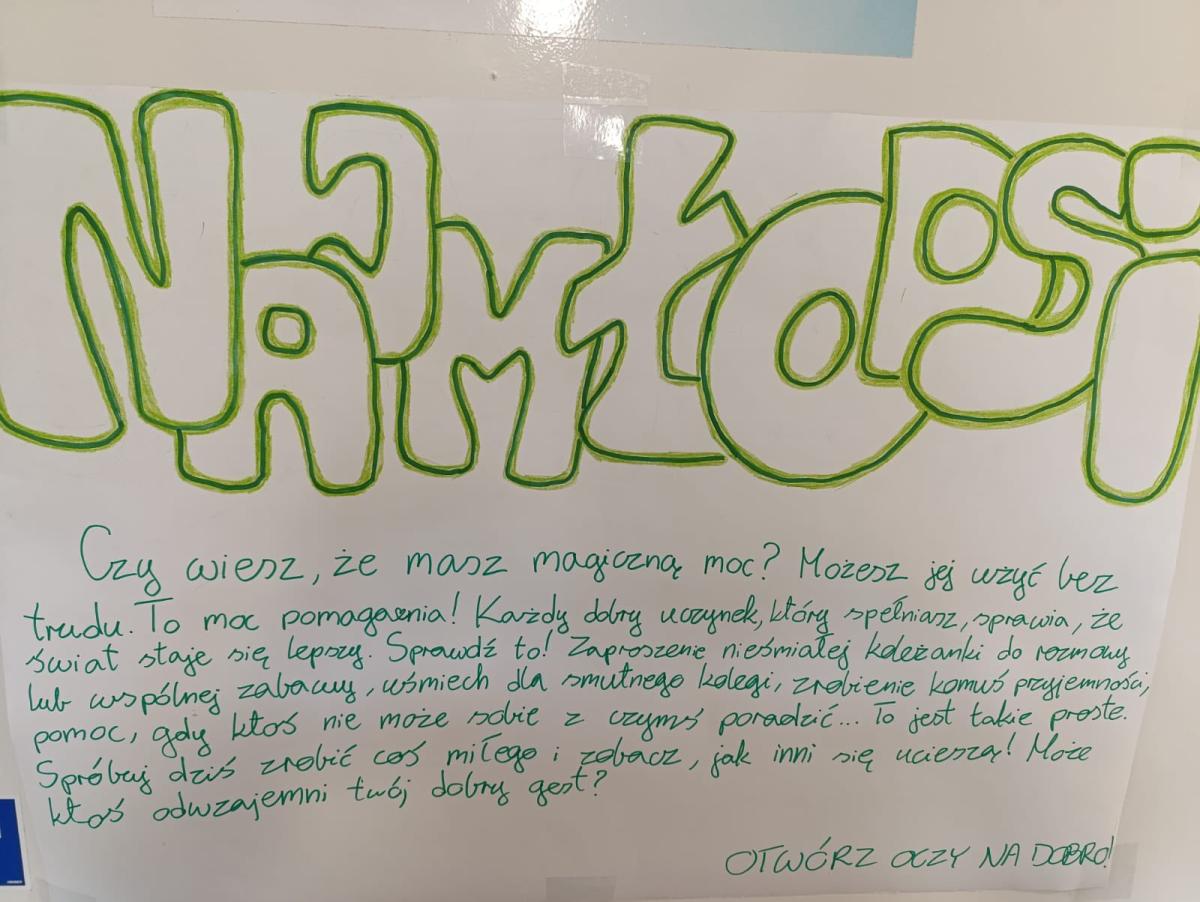 NAJMŁODSi
Czy wiesz, że masz magiczną moc? Możesz jej użyć bez
trudu. To moc pomagania! Każdy dobry uczynek, który spełniasz, sprawia, że
świat staje się lepszy. Sprawdź to! Zaproszenie nieśmiałej koleżanki do rozmowy
lub wspólnej zabawy, uśmiech dla smutnego kolegi, zrobienie komuś przyjemności,
pomoc, gdy ktoś nie może sobie z czymś poradzić... To jest takie proste.
Spróbuj dziś zrobić coś miłego i zobacz, jak inni się ucieszą! Może
ktoś odwzajemni twój dobry gest?
OTWÓRZ OCZY NA DOBRO!